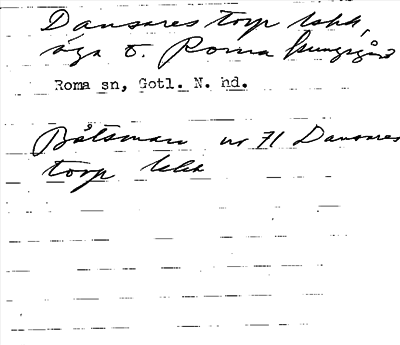 Dansares torp lokk,
äga t. Roma kungsgård
Roma sn, Gotl. N. hd.
Båtsman nr 71 Dansares
torp lokk